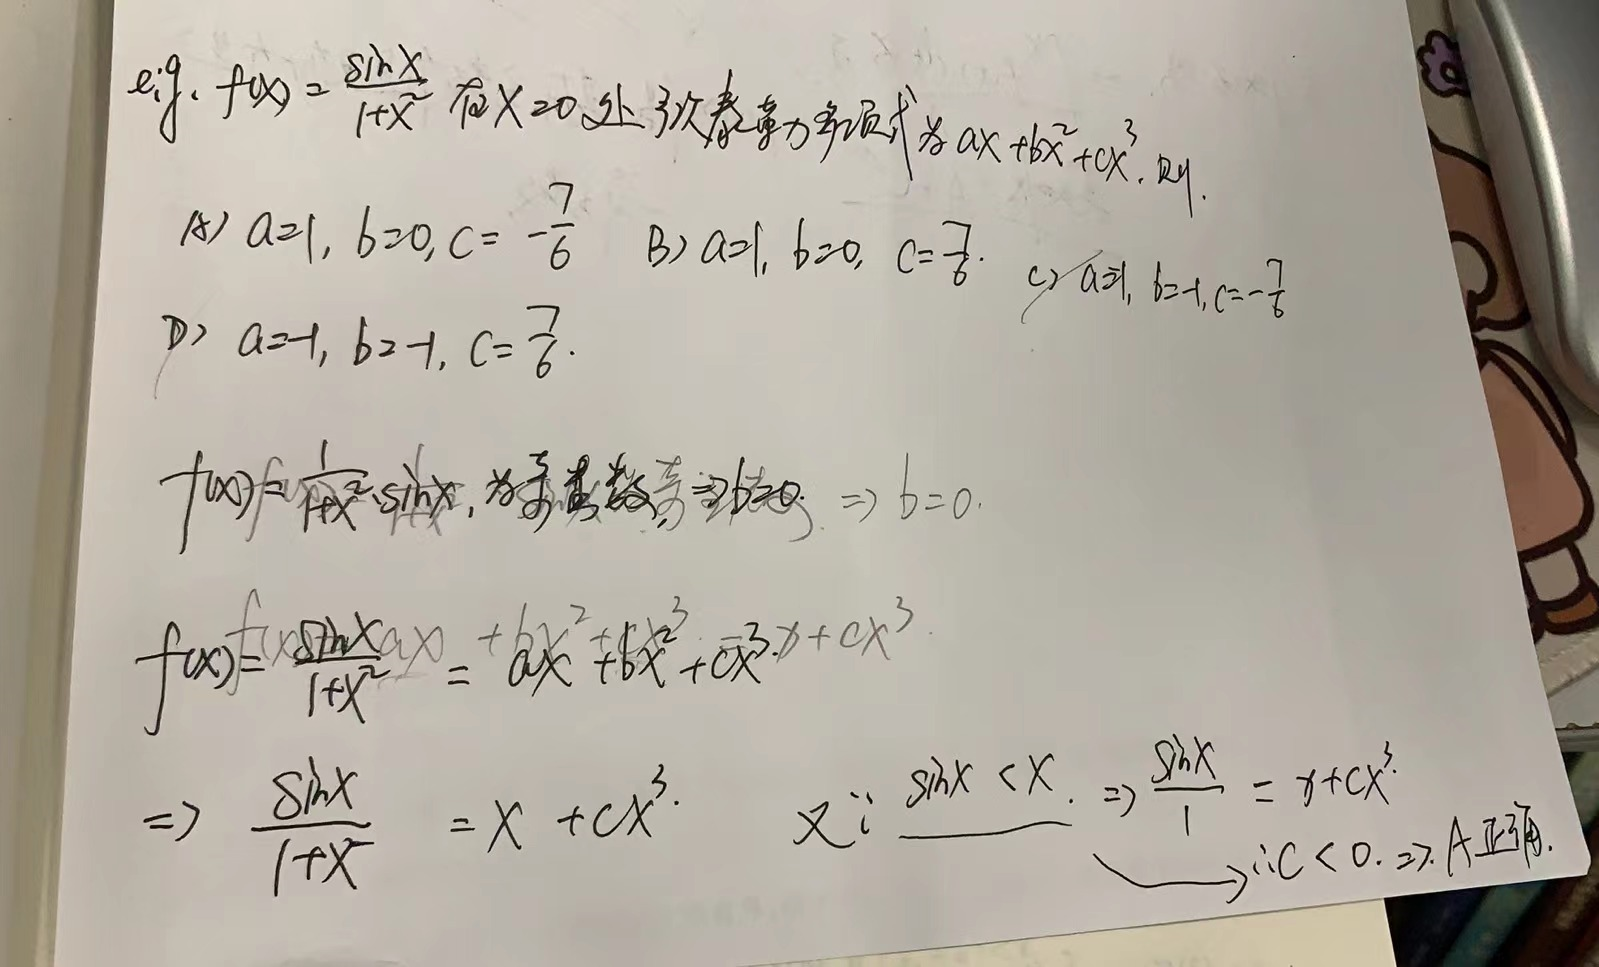 e.g. f(x) = sinx/(1+x²) 在x=0处3次泰勒多项式为ax+bx²+cx³.则.
A) a=1, b=0, c= -7/6 B) a=1, b=0, c=7/6. C) a=1, b=-1, c=-7/6
D) a=-1, b=-1, c=7/6.
f(x)= 1/(1+x²)·sinx, 为奇函数, ⇒b=0. ⇒ b=0.
f(x)= sinx/(1+x²) = ax+bx²+cx³.
⇒ sinx/(1+x²) = x + cx³. 又∵ sinx < x. ⇒ sinx/1 = x+cx³.
∴C < 0. ⇒. A正确.